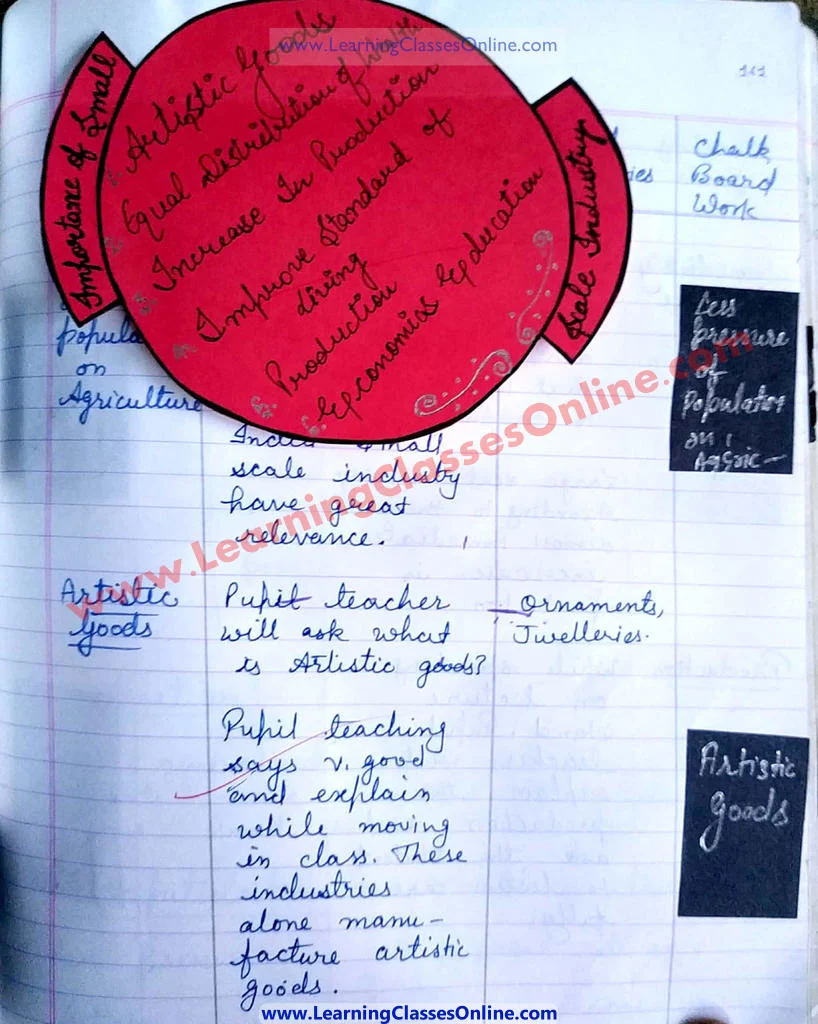 www.LearningClassesOnline.com
161
Importance of Small
Scale Industry
Artistic Goods
Equal Distribution of Wealth
Increase In Production
Improve Standard of
living
Production
Economics Education
Chalk
Board
Work
ies
popula
on
Agriculture
Less
pressure
of
Population
on
Agric-
India small
scale industry
have great
relevance.
www.LearningClassesOnline.com
Artistic
Goods
Pupil teacher
will ask what
is Artistic goods?
Ornaments,
Jwelleries.
Pupil teaching
says v. good
and explain
while moving
in class. These
industries
alone manu-
facture artistic
goods.
Artistic
goods
www.LearningClassesOnline.com